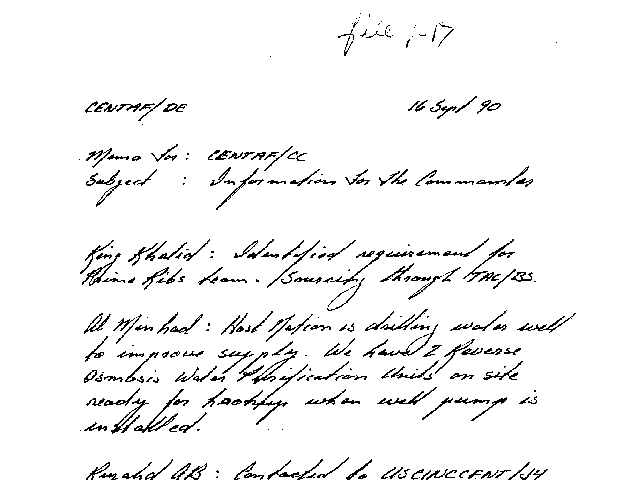 file 1-17
CENTAF/DE 16 Sept 90
Memo for: CENTAF/CC
Subject : Information for the Commander
King Khalid : Identified requirement for
Prime Ribs team. Sourcing through TAC/
Al Minhad : Host Nation is drilling water well
to improve supply. We have 2 Reverse
Osmosis Water Purification Units on site
ready for hookup when well pump is
installed.
AB : Contacted to USCINCCENT/J4